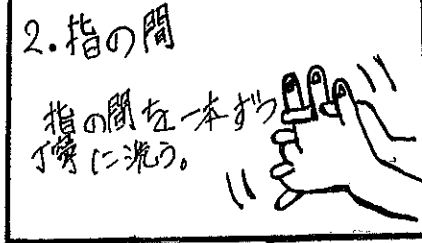 2.指の間
指の間を一本ずつ
丁寧に洗う。